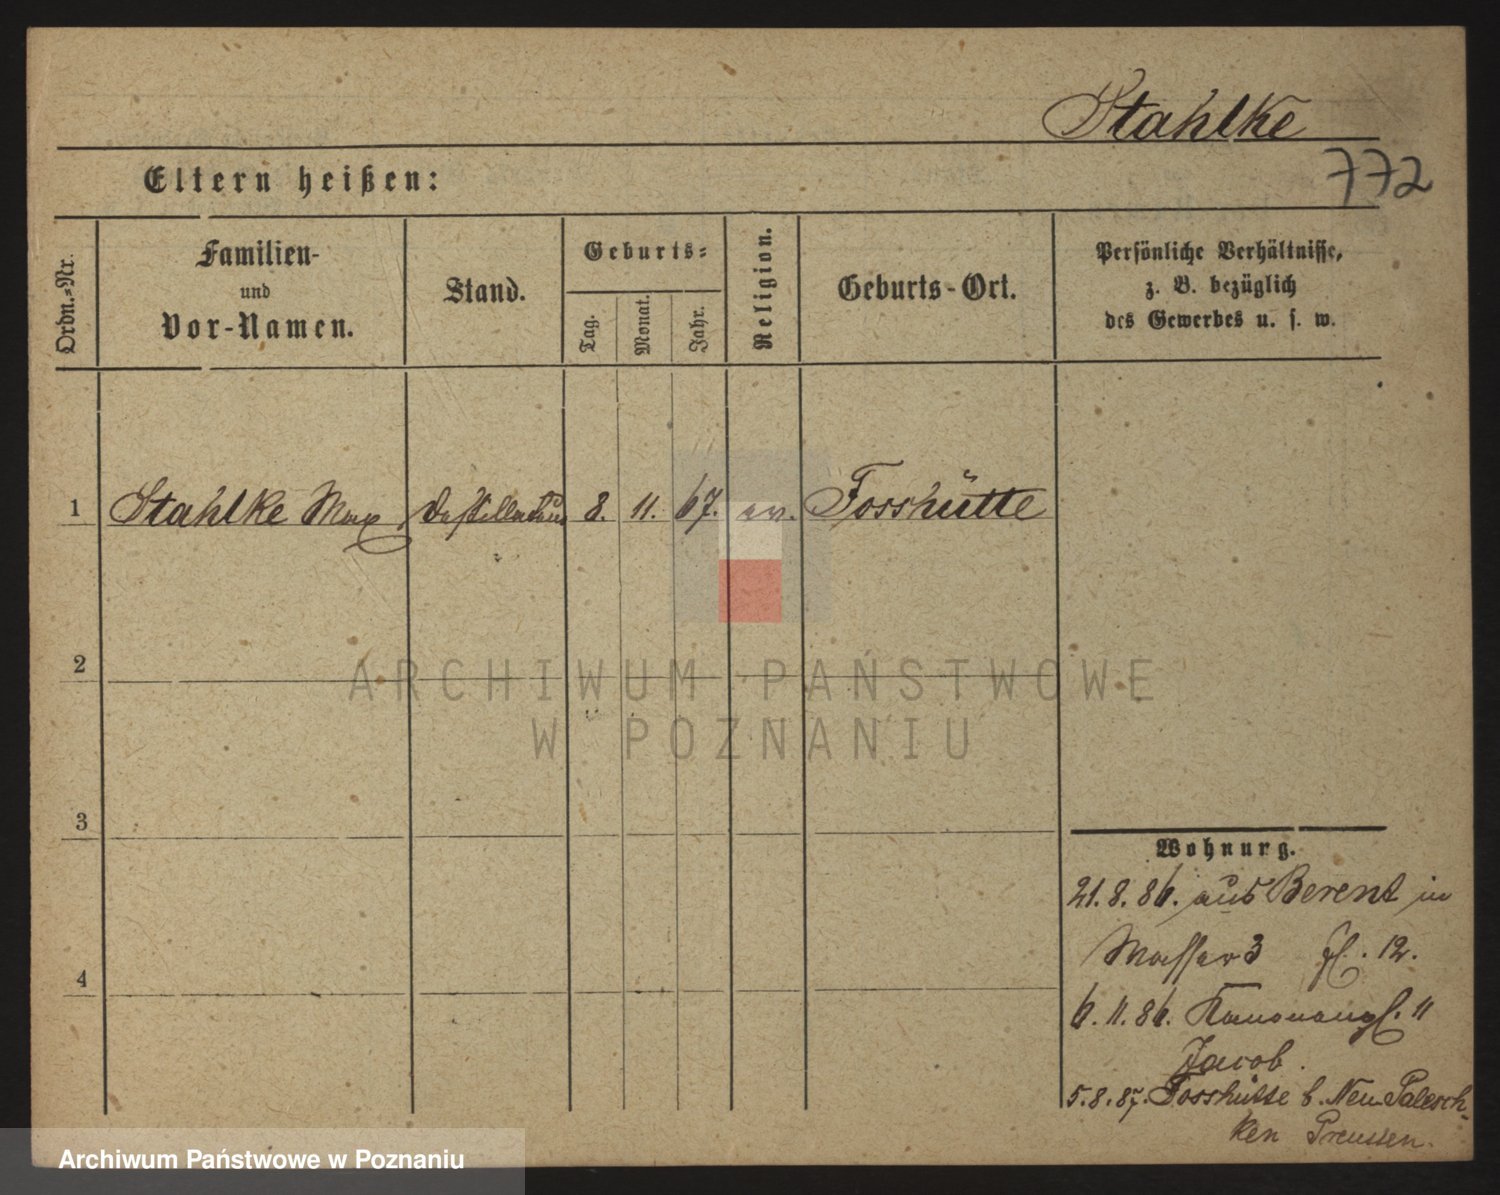 Stahlke
772
Eltern heißen:
Ordn.=Nr.
Familien-
und
Vor-Namen.
Stand.
Geburts=
Tag.
Monat.
Jahr.
Religion.
Geburts-Ort.
Persönliche Verhältnisse,
z. B. bezüglich
des Gewerbes u. s. w.
1 Stahlke Max 8. 11. 67. ev. Fosshütte
2
ARCHIWUM PAŃSTWOWE
W POZNANIU
3
Wohnung.
21.8.86. aus Berent in
Wasser 3 12.
4
6.11.86. Kanonenpl. 11
Jacob.
5.8.87. Fosshütte b. Neu Palesch-
ken Preussen.
Archiwum Państwowe w Poznaniu